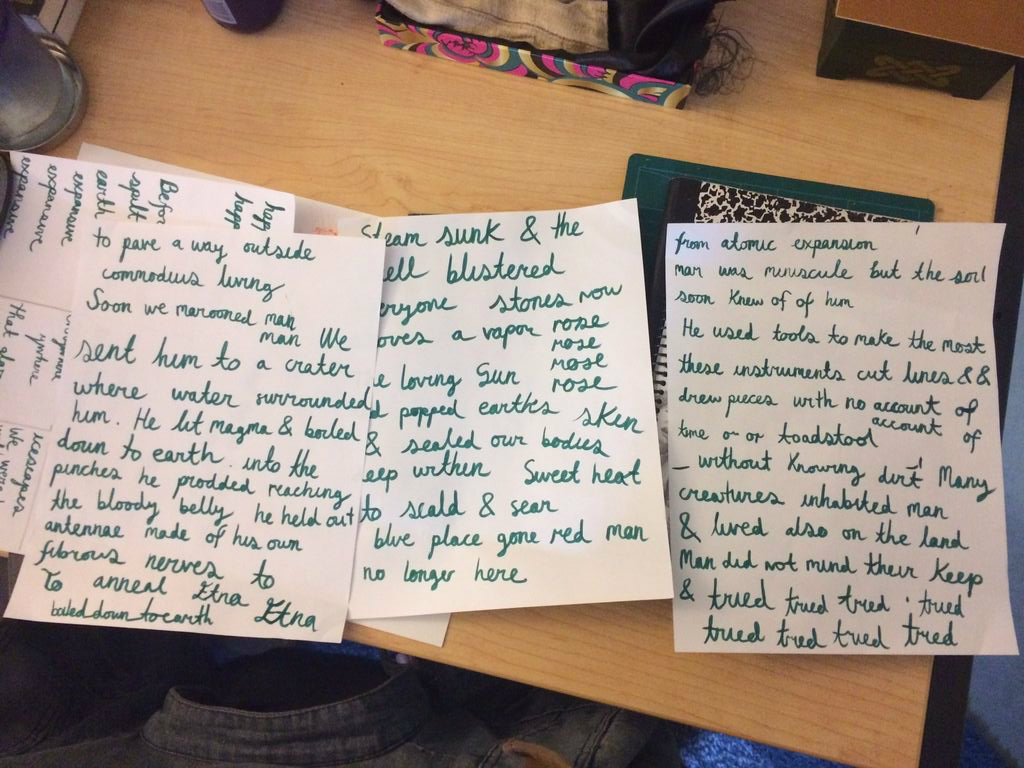 happ
happ
Befor
spilt
earth
expansive
expansive
expansive
that
we
to pave a way outside
commodius living
Soon we marooned man
man We
sent him to a crater
where water surrounded
him. He lit magma & boiled
down to earth. into the
pinches he prodded reaching
the bloody belly he held out
antennae made of his own
fibrous nerves to
To anneal Etna Etna
boiled down to earth
steam sunk & the
ell blistered
eryone stones now
oves a vapor rose
rose
rose
e loving Sun rose
d popped earths sken
& sealed our bodies
eep within Sweet heat
to scald & sear
blue place gone red man
no longer here
from atomic expansion
man was minuscule but the soil
soon knew of of him
He used tools to make the most
these instruments cut lines & &
drew pieces with no account of
account of
time o or or toadstool
_ without knowing dirt! Many
creatures inhabited man
& lived also on the land
Man did not mind their keep
& tried tried tried tried
tried tried tried tried